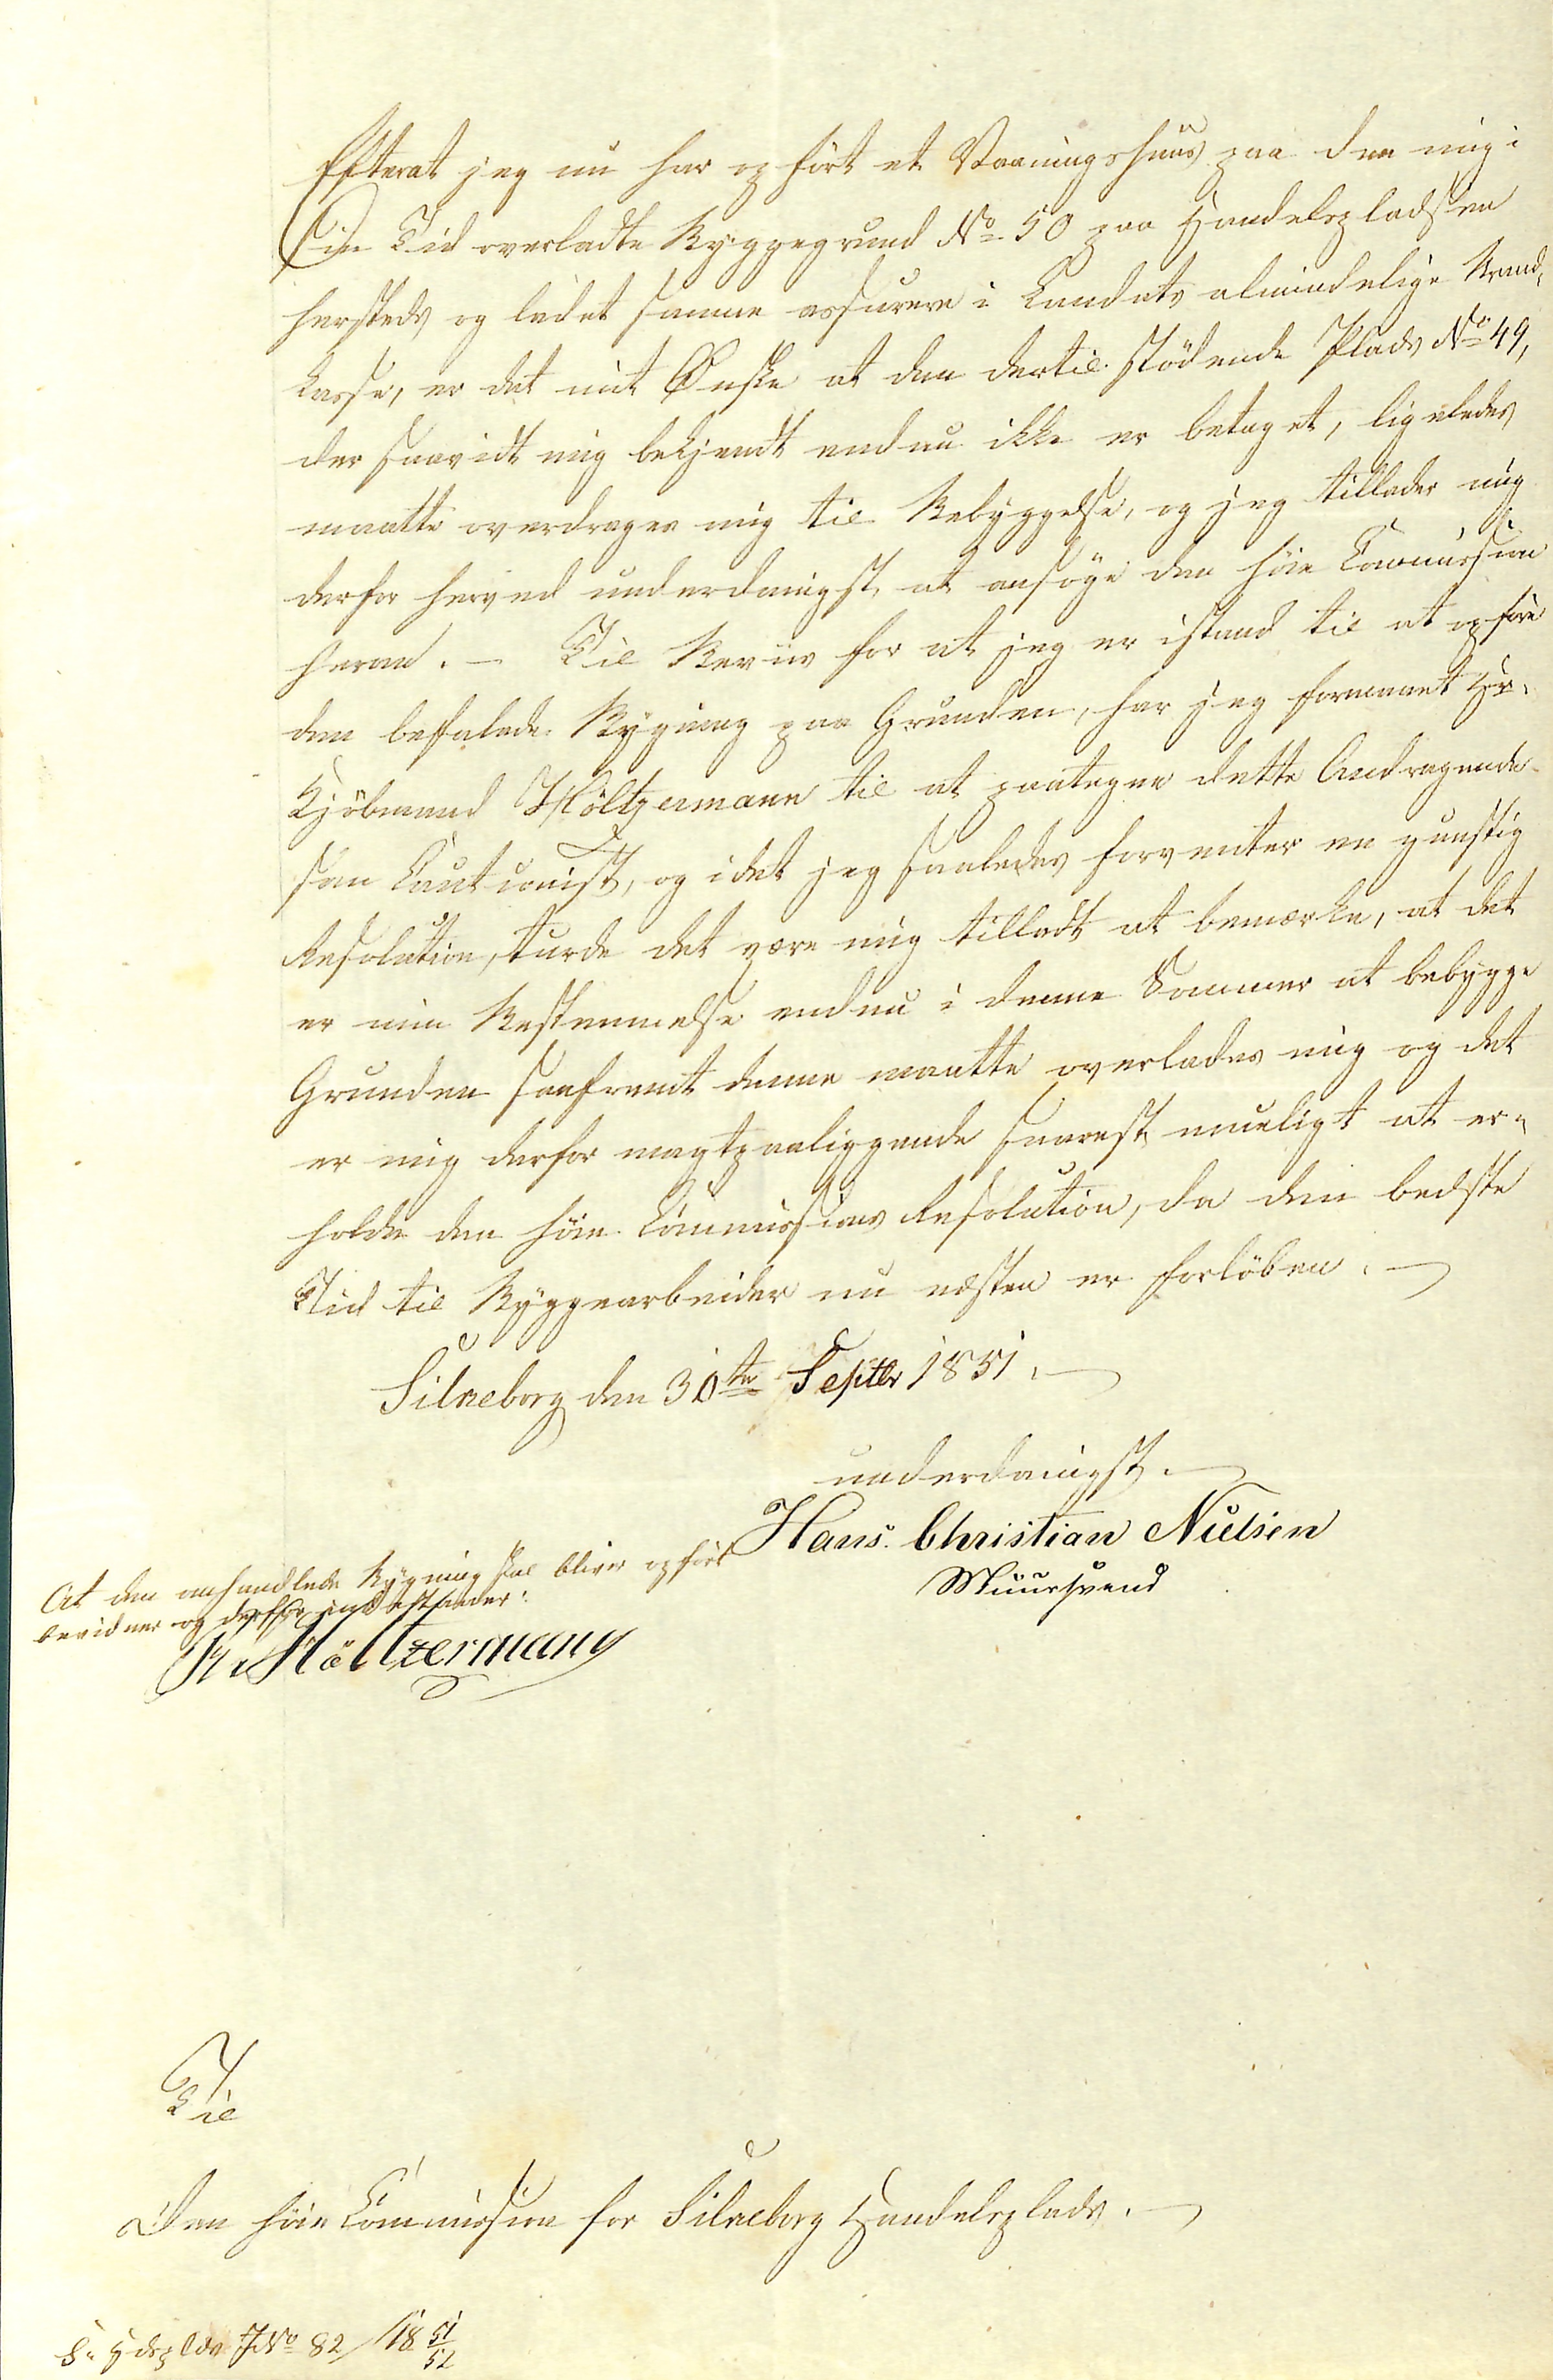 Efterat jeg nu har opført et Vaaningshuus paa den mig i
sin Tid overladte Byggegrund No 50 paa Handelspladsen
hersteds og ladet samme assurere i Landets almindelige Brand-
casse, er det mit Ønske at den dertil stödende Plads No 49,
der saavidt mig bekjendt endnu ikke er betaget, ligeledes
maatte overdrages mig til Bebyggelse, og jeg tillader mig
derfor herved underdanigst at ansöge den höie Commission
herom. – Til Beviis for at jeg er istand til at opföre
den befalede Bygning paa Grunden, har jeg formaaet Hr.
Kjöbmand Höltzermann til at paategne dette Andragende
som Cautionist, og idet jeg saaledes forventer en gunstig
Resolution, turde det være mig tilladt at bemærke, at det
er min Bestemmelse endnu i denne Sommer at bebygge
Grunden saafremt denne maatte overlades mig og det
er mig derfor magtpaaliggende snarest mueligt at er-
holde den höie Commissions Resolution, da den bedste
Tid til Byggearbeider nu næsten er forlöben. –
Silkeborg den 30te Septbr 1851. –
underdanigst. –
Hans Christian Nielsen
Muursvend
At den omhandlede Bygning skal bliver opført
bevidner og derfor indestaaer:
Höltzermann
Til
Den höie Commission for Silkeborg Handelsplads. –
S. Hdsplds J No 82/18 51/52